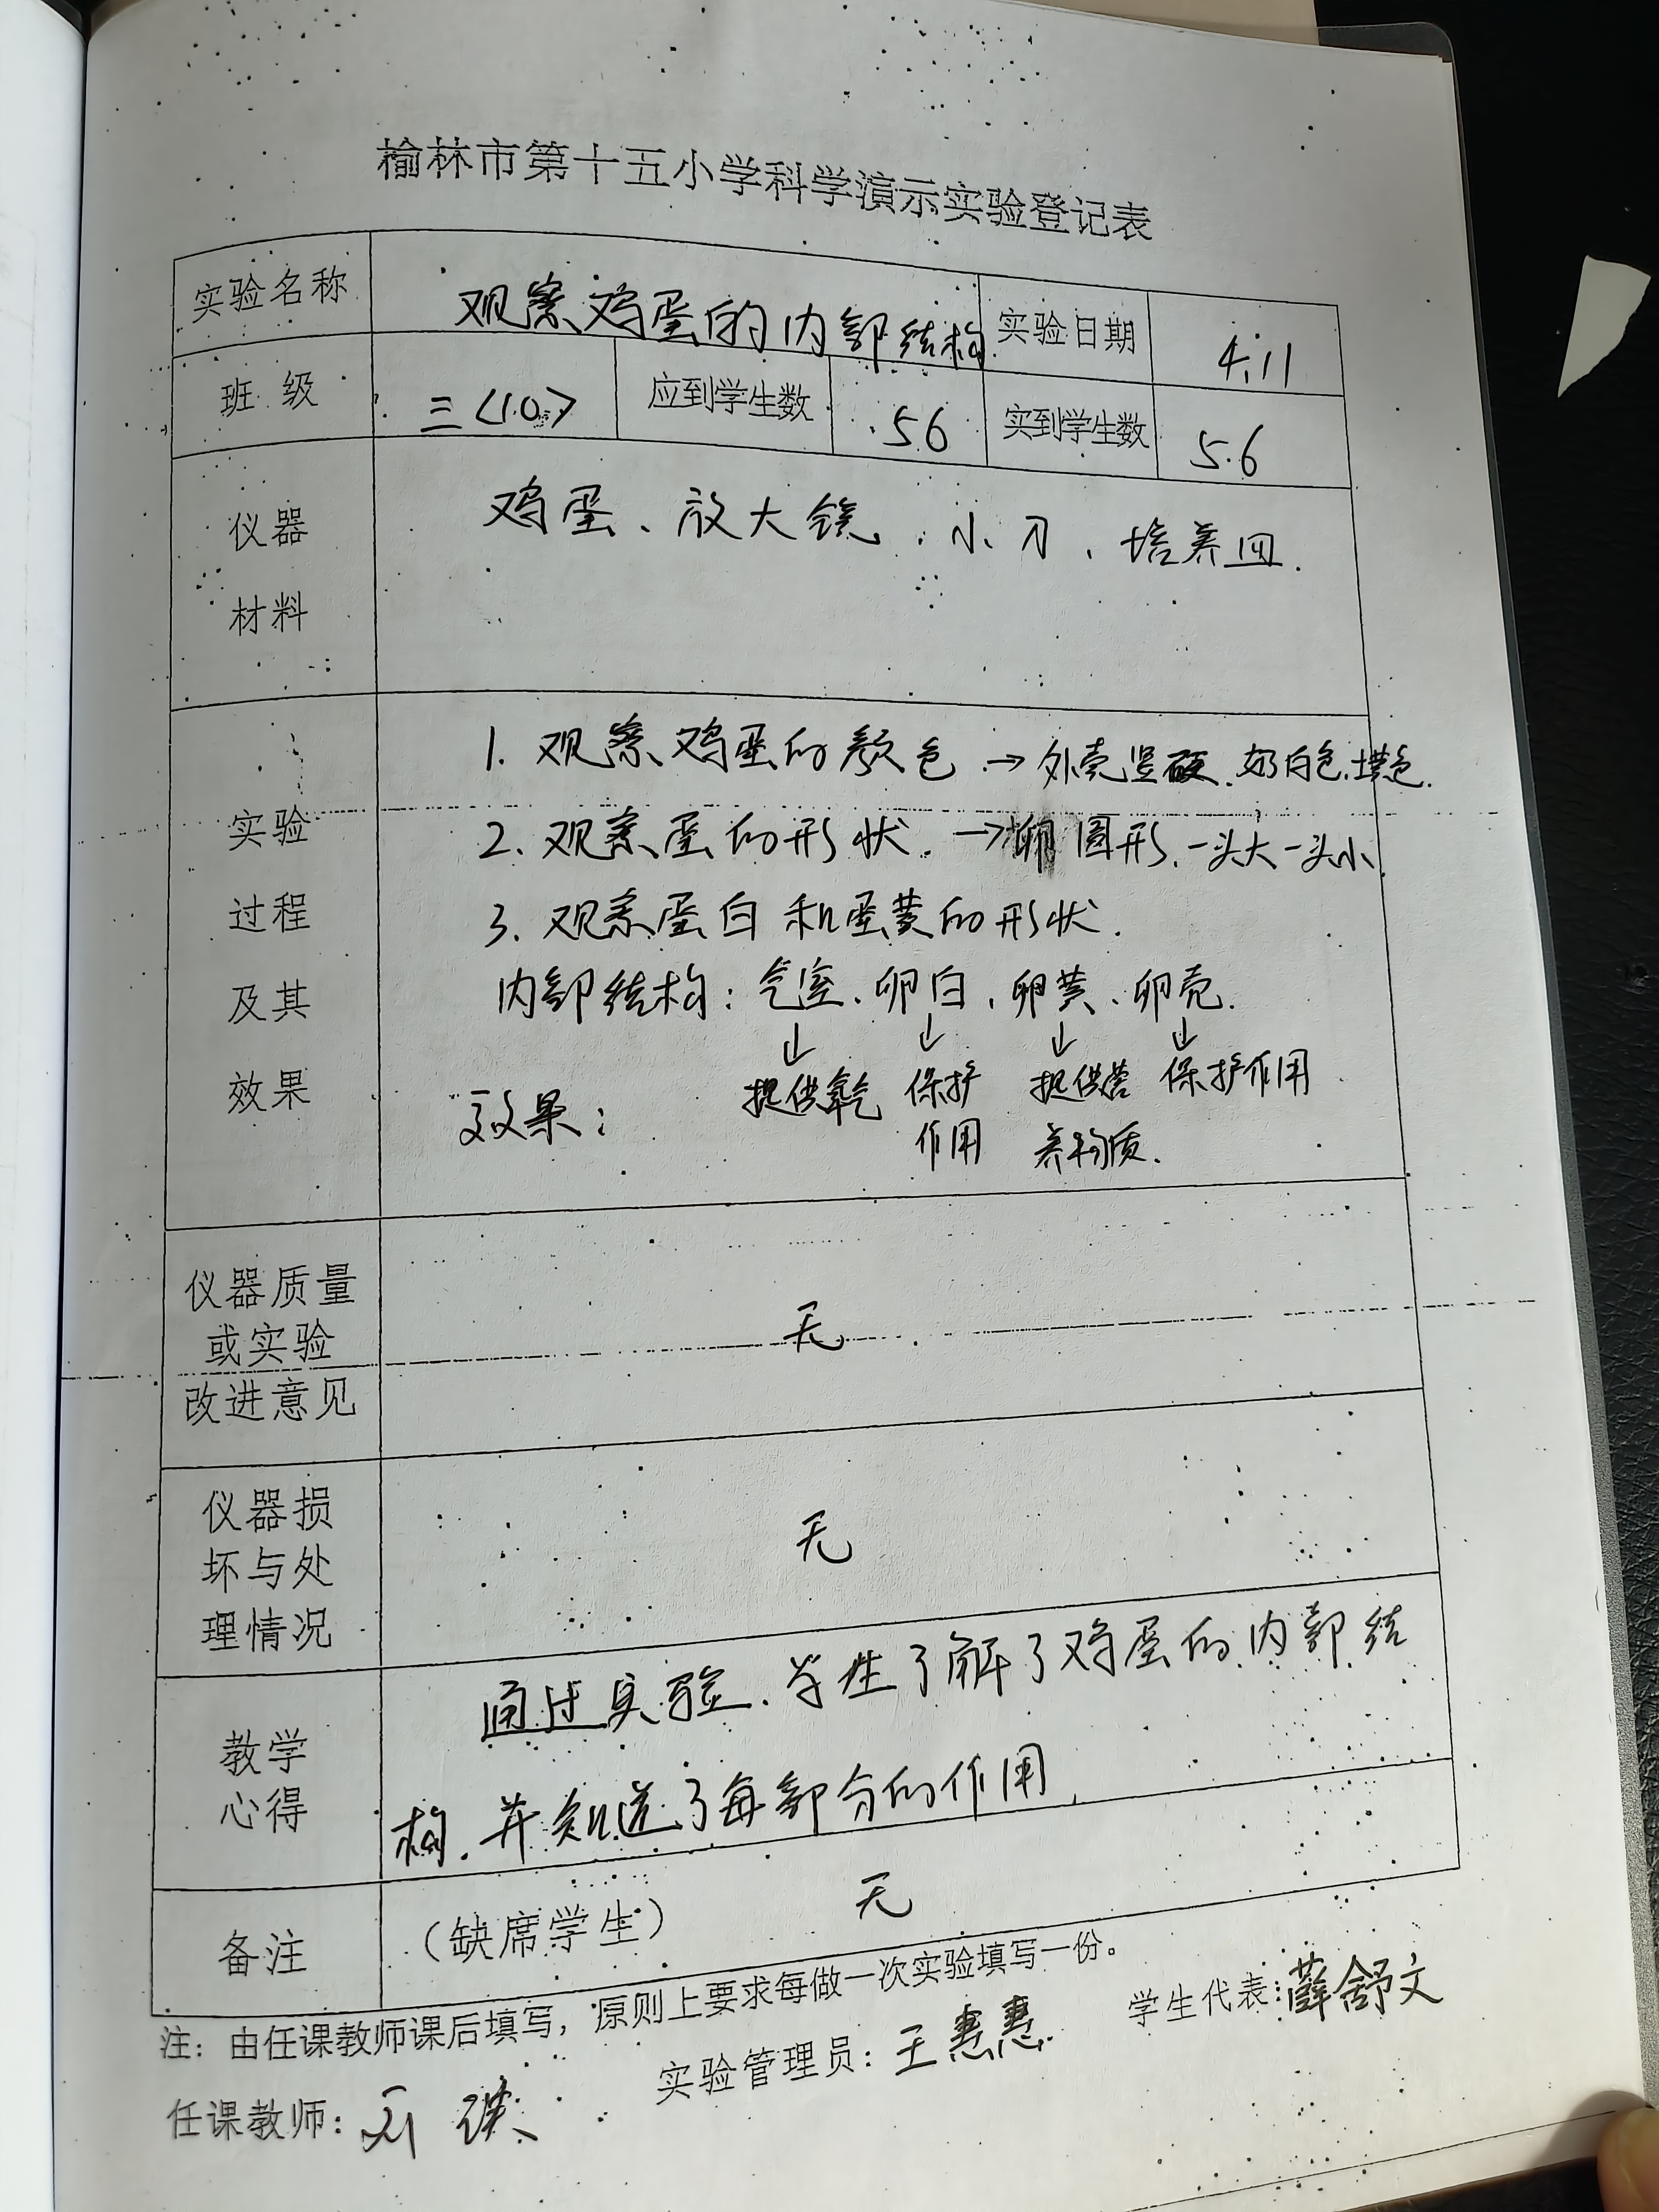 榆林市第十五小学科学演示实验登记表
实验名称 观察鸡蛋的内部结构 实验日期 4.11
班 级 三<10> 应到学生数 56 实到学生数 56
仪器
材料
鸡蛋、放大镜、小刀、培养皿.
实验
过程
及其
效果
1. 观察鸡蛋的颜色 → 外壳坚硬.奶白色.
2. 观察蛋的形状. → 卵圆形.一头大一头小
3. 观察蛋白和蛋黄的形状.
内部结构: 气室、卵白、卵黄、卵壳.
↓ ↓ ↓ ↓
效果: 提供氧气 保护 提供营 保护作用
作用 养物质.
仪器质量
或实验
改进意见
无
仪器损
坏与处
理情况
无
教学
心得
通过实验.学生了解了鸡蛋的内部结
构.并知道了每部分的作用.
备注 (缺席学生) 无
注：由任课教师课后填写，原则上要求每做一次实验填写一份。
任课教师: 实验管理员: 王惠惠 学生代表: 薛舒文